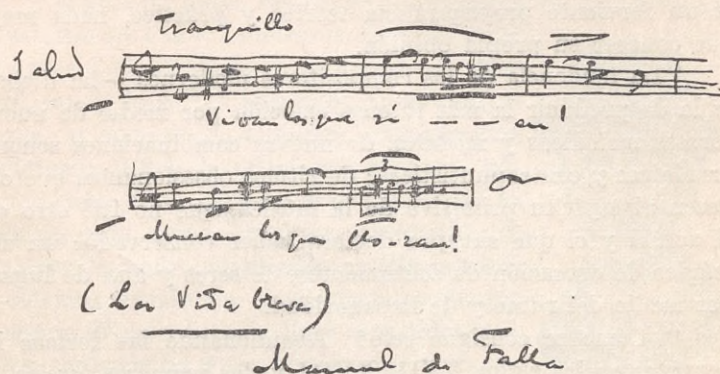 Tranquillo
Salud
Vivan los que rí – – en!
3
Mueran los que llo-ran!
(La Vida breve)
Manuel de Falla